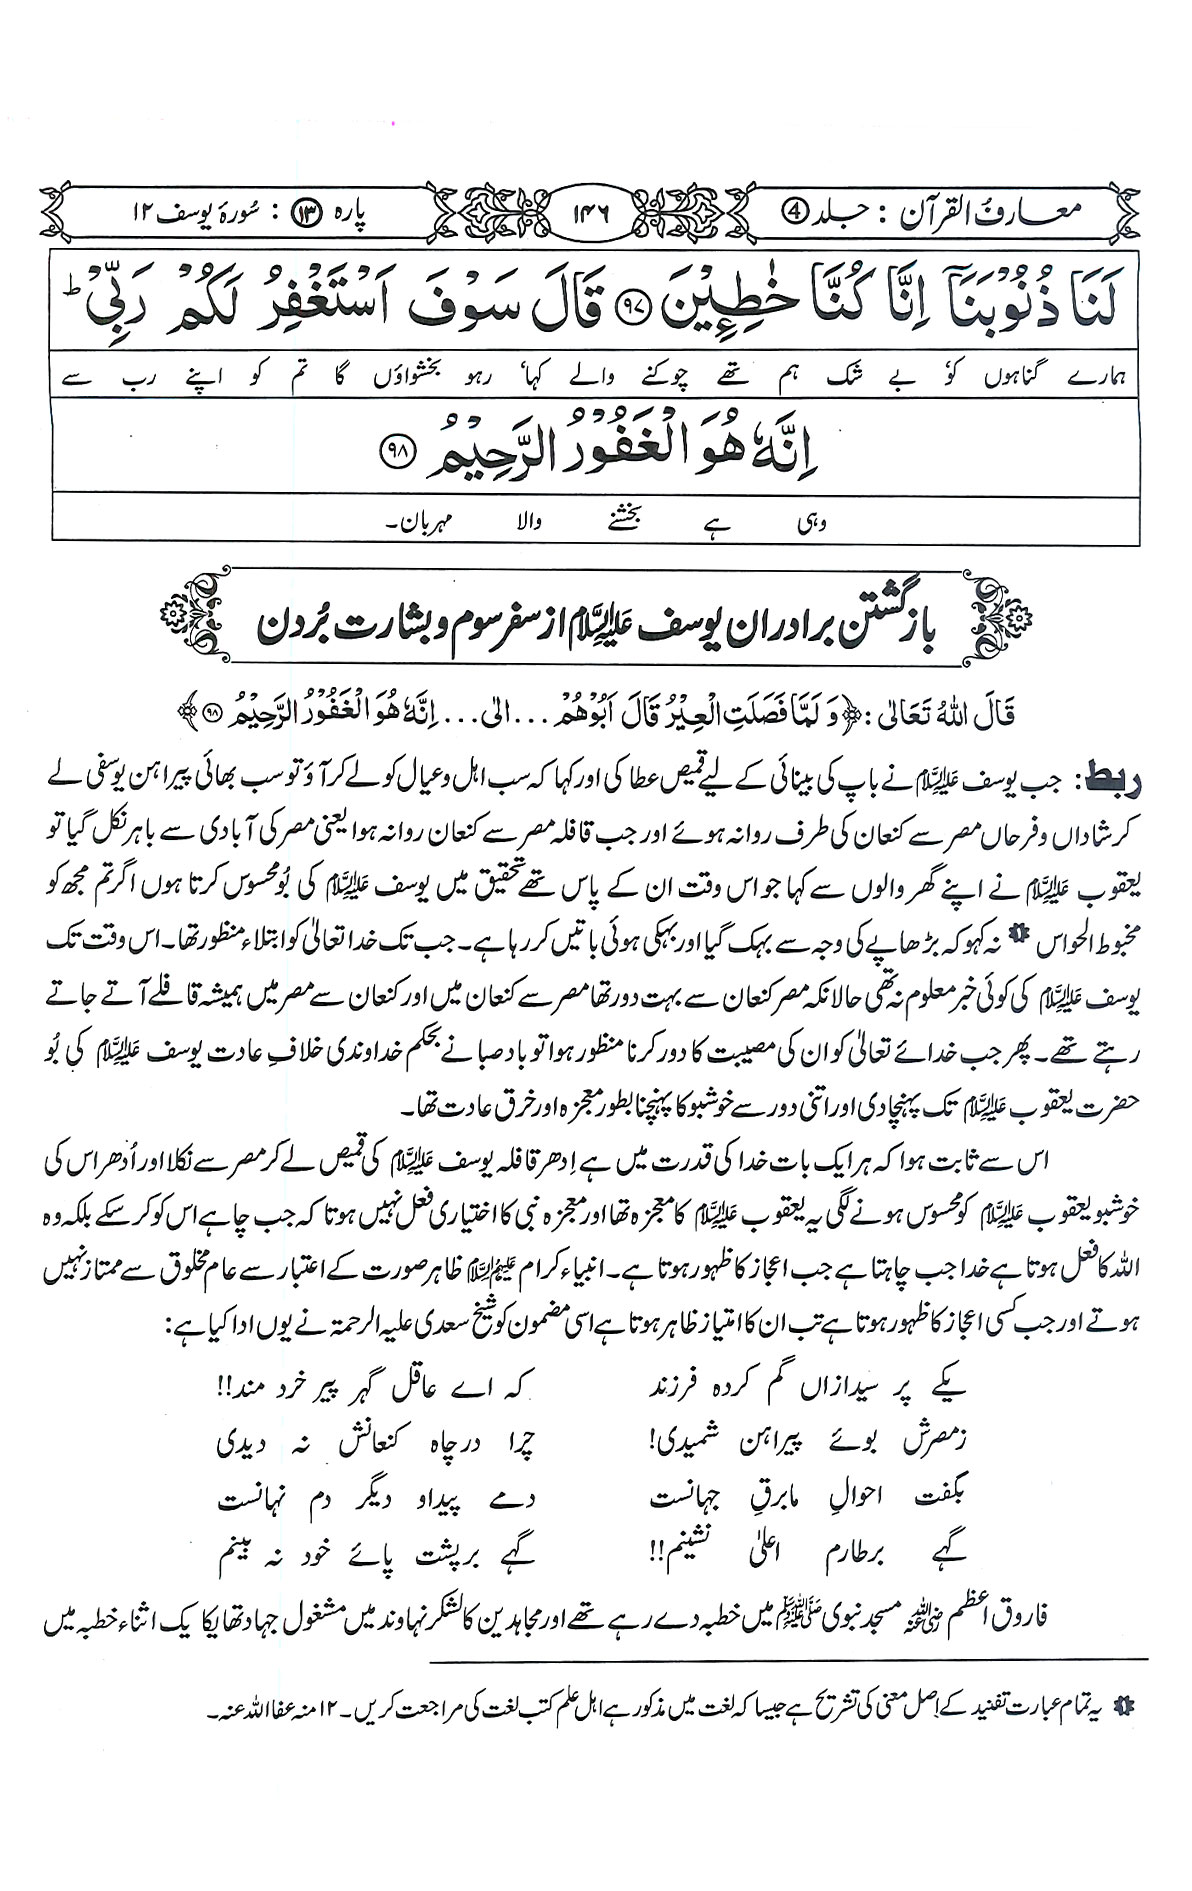 معارفُ القرآن : جلد ④
۱۴۶
پارہ ⑬ : سُورۂ یوسف ۱۲
لَنَا ذُنُوْبَنَآ اِنَّا كُنَّا خٰطِـِٕيْنَ ۝۹۷ قَالَ سَوْفَ اَسْتَغْفِرُ لَكُمْ رَبِّيْ ؕ
ہمارے گناہوں کو' بے شک ہم تھے چوکنے والے کہا' رہو بخشواؤں گا تم کو اپنے رب سے
اِنَّهٗ هُوَ الْغَفُوْرُ الرَّحِيْمُ ۝۹۸
وہی ہے بخشنے والا مہربان۔
بازگشتن برادران یوسف علیہ السلام از سفر سوم و بشارت بُردن
قَالَ اللهُ تَعَالٰی : ﴿وَ لَمَّا فَصَلَتِ الْعِيْرُ قَالَ اَبُوْهُمْ ... الٰی ... اِنَّهٗ هُوَ الْغَفُوْرُ الرَّحِيْمُ ۝۹۸﴾
ربط : جب یوسف علیہ السلام نے باپ کی بینائی کے لیے قمیص عطا کی اور کہا کہ سب اہل و عیال کو لے کر آؤ تو سب بھائی پیراہن یوسفی لے
کر شاداں و فرحاں مصر سے کنعان کی طرف روانہ ہوئے اور جب قافلہ مصر سے کنعان روانہ ہوا یعنی مصر کی آبادی سے باہر نکل گیا تو
یعقوب علیہ السلام نے اپنے گھر والوں سے کہا جو اس وقت ان کے پاس تھے تحقیق میں یوسف علیہ السلام کی بُو محسوس کرتا ہوں اگر تم مجھ کو
مخبوط الحواس ۱ نہ کہو کہ بڑھاپے کی وجہ سے بہک گیا اور بہکی ہوئی باتیں کر رہا ہے۔ جب تک خدا تعالیٰ کو ابتلاء منظور تھا۔ اس وقت تک
یوسف علیہ السلام کی کوئی خبر معلوم نہ تھی حالانکہ مصر کنعان سے بہت دور تھا مصر سے کنعان میں اور کنعان سے مصر میں ہمیشہ قافلے آتے جاتے
رہتے تھے۔ پھر جب خدائے تعالیٰ کو ان کی مصیبت کا دور کرنا منظور ہوا تو باد صبا نے بحکم خداوندی خلافِ عادت یوسف علیہ السلام کی بُو
حضرت یعقوب علیہ السلام تک پہنچا دی اور اتنی دور سے خوشبو کا پہنچنا بطور معجزہ اور خرق عادت تھا۔
اس سے ثابت ہوا کہ ہر ایک بات خدا کی قدرت میں ہے اِدھر قافلہ یوسف علیہ السلام کی قمیص لے کر مصر سے نکلا اور اُدھر اس کی
خوشبو یعقوب علیہ السلام کو محسوس ہونے لگی یہ یعقوب علیہ السلام کا معجزہ تھا اور معجزہ نبی کا اختیاری فعل نہیں ہوتا کہ جب چاہے اس کو کر سکے بلکہ وہ
اللہ کا فعل ہوتا ہے خدا جب چاہتا ہے جب اعجاز کا ظہور ہوتا ہے۔ انبیاء کرام علیہم السلام ظاہر صورت کے اعتبار سے عام مخلوق سے ممتاز نہیں
ہوتے اور جب کسی اعجاز کا ظہور ہوتا ہے تب ان کا امتیاز ظاہر ہوتا ہے اسی مضمون کو شیخ سعدی علیہ الرحمۃ نے یوں ادا کیا ہے:
یکے پر سیدازاں گم کردہ فرزند کہ اے عاقل گہر پیر خرد مند!!
زمصرش بوئے پیراہن شمیدی! چرا در چاہ کنعانش نہ دیدی
بگفت احوالِ مابرقِ جہانست دمے پیداو دیگر دم نہانست
گہے برطارم اعلیٰ نشینم!! گہے برپشت پائے خود نہ بینم
فاروق اعظم رضی اللہ عنہ مسجد نبوی صلی اللہ علیہ وسلم میں خطبہ دے رہے تھے اور مجاہدین کا لشکر نہاوند میں مشغول جہاد تھا یکا یک اثناء خطبہ میں
۱ یہ تمام عبارت تفنید کے اصل معنی کی تشریح ہے جیسا کہ لغت میں مذکور ہے اہل علم کتب لغت کی مراجعت کریں۔ ۱۲ منہ عفا اللہ عنہ۔